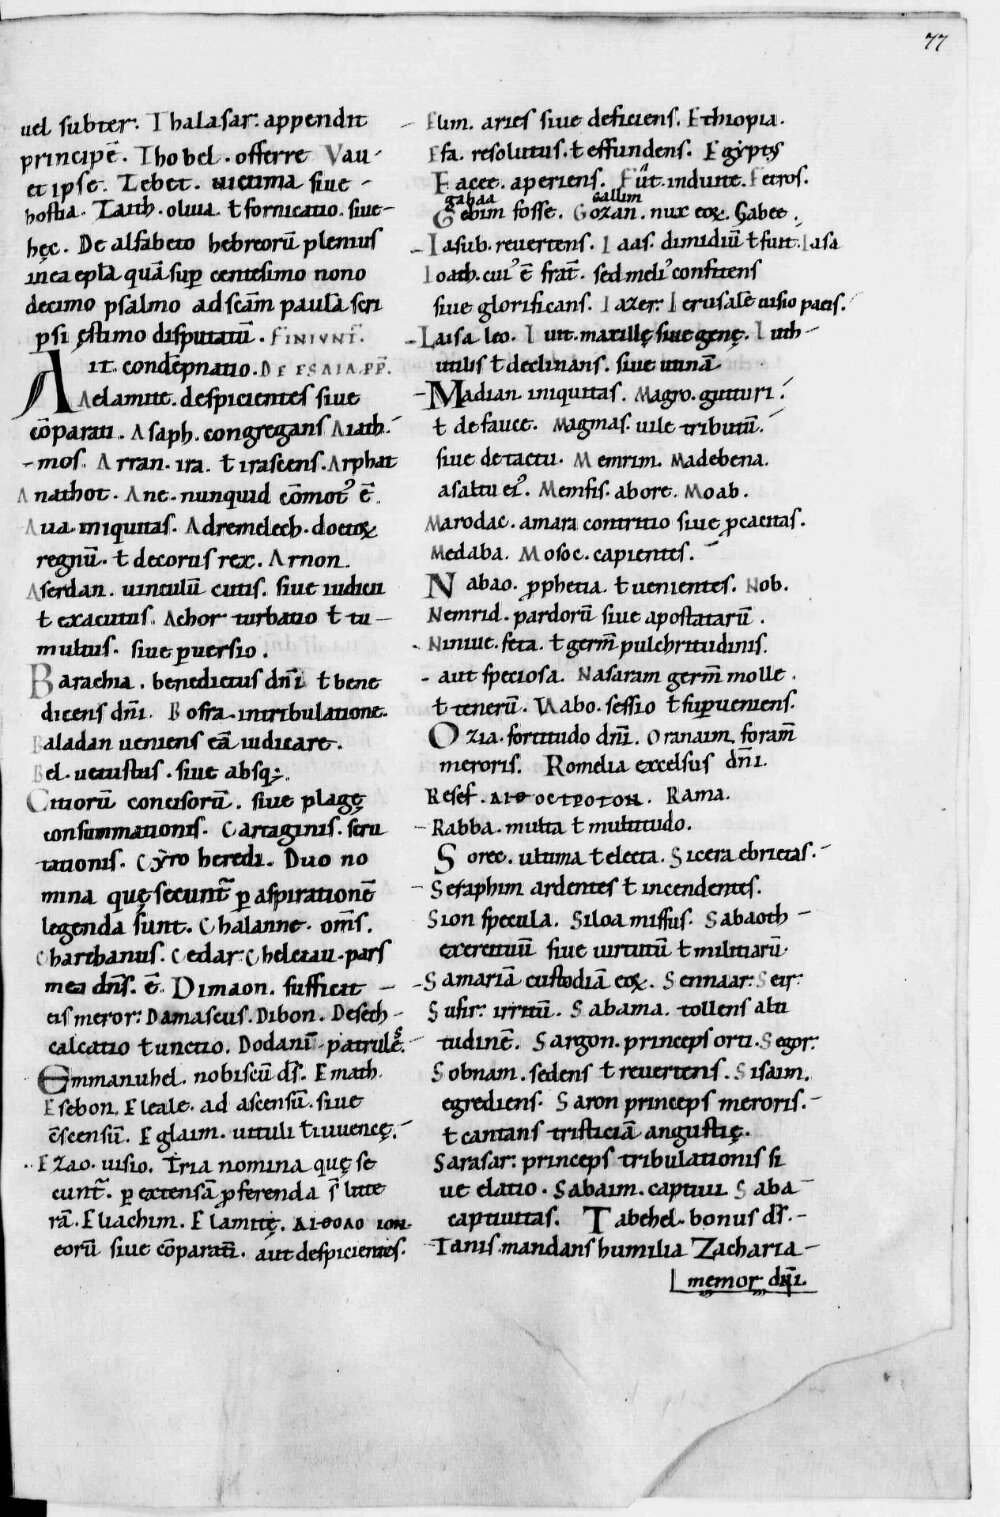 77
uel subter. Thalasar. appendit
principē. Thobel. offerre Vau
et ipse. Zebet. uictima siue
hostia. Zaith. oliua. ł fornicatio. siue
hęc. De alfabeto hebreorū plenius
in ea epła quā sup centesimo nono
decimo psalmo ad scām paulā scri
psi ęstimo disputatū. FINIUNT̄.
AIT. condēpnatio. DE ESAIA PP̄.
Aelamite. despicientes siue
cōparati. Asaph. congregans Aiath.
mos. Arran. ira. ł irascens. Arphat
Anathot. Ane. nunquid cōmot᾽ ē.
Aua. iniquitas. Adremelech. doctoꝝ
regnū. ł decorus rex. Arnon.
Aserdan. uinculū cutis. siue iudicii
ł exacutus. Achor turbatio ł tu
multus. siue puersio.
Barachia. benedictus dn̄i ł bene
dicens dn̄i. Bosra. intribulatione.
Baladan ueniens eā iudicare.
Bel. uetustus. siue absq;.
Citiorū concisorū. siue plagę
consummationis. Cartaginis. scru
tationis. Cẏro heredi. Duo no
mina quę secunt᷑ p aspirationē
legenda sunt. Chalanne. om̄s.
Charthanus. Cedar. Chelciau. pars
mea dn̄s. ē. Dimaon. sufficit
eis meror. Damascus. Dibon. Desech
calcatio ł unctio. Dodanī patrulēs.
Emmanuhel. nobiscū ds̄. Emath.
Esebon. Eleale. ad ascensū. siue
ēscensū. Eglaim. uituli ł iuuencę.
Ezao. uisio. Tria nomina quę se
cunt᷑. p extensā pferenda s̄ litte
rā. Eliachim. Elamitę. ΑΙΘΟΛΟ ΙΟΝ.
eorū siue cōparati. aut despicientes.
Elim. aries siue deficiens. Ethiopia.
Efa. resolutus. ł effundens. Egẏpt᾽
Facee. aperiens. Fūt. induite. Fetros.
gabaa callim
Gebim fosse. Gozan. nux eoꝝ. Gabee.
Iasub. reuertens. Iaas. dimidiū ł fuit. Iasa
Ioath. cui᾽ ē frat̄. sed meli᾽ confitens
siue glorificans. Iazer. Ierusalē uisio pacis.
Laisa leo. Luit. maxillę siue genę. Luith
utilis ł declinans. siue utinā
Madian iniquitas. Magro. gutturi.
ł defauce. Magmas. uile tributū.
siue de tactu. Memrim. Madebena.
a saltu ei᾽. Memfis. abore. Moab.
Marodac. amara contritio siue pcacitas.
Medaba. Mosoc. capientes.
Nabao. pphetia. ł uenientes. Nob.
Nemrid. pardorū siue apostatarū.
Niniue. feta. ł germ̄ pulchritudinis.
aut speciosa. Nasaram germ̄ molle.
ł tenerū. Nabo. sessio ł supueniens.
Ozia. fortitudo dn̄i. Oranaim. foram̄
meroris. Romelia excelsus dn̄i.
Resef. ΛΙΘΟCΤΡΟΤΟΝ. Rama.
Rabba. multa ł multitudo.
Sorec. ultima ł electa. Sicera ebrietas.
Seraphim ardentes ł incendentes.
Sion specula. Siloa missus. Sabaoth
exercituū siue uirtutū ł militiarū.
Samariā custodiā eoꝝ. Sennaar. Seir.
Sufir. irritū. Sabama. tollens alti
tudinē. Sargon. princeps orti. Segor.
Sobnam. sedens ł reuertens. Sisaim.
egrediens. Saron princeps meroris.
ł cantans tristiciā angustię.
Sarasar. princeps tribulationis si
ue elatio. Sabaim. captiui Saba
captiuitas. Tabehel. bonus ds̄.
Tanis mandans humilia Zacharia
memor dn̄i.